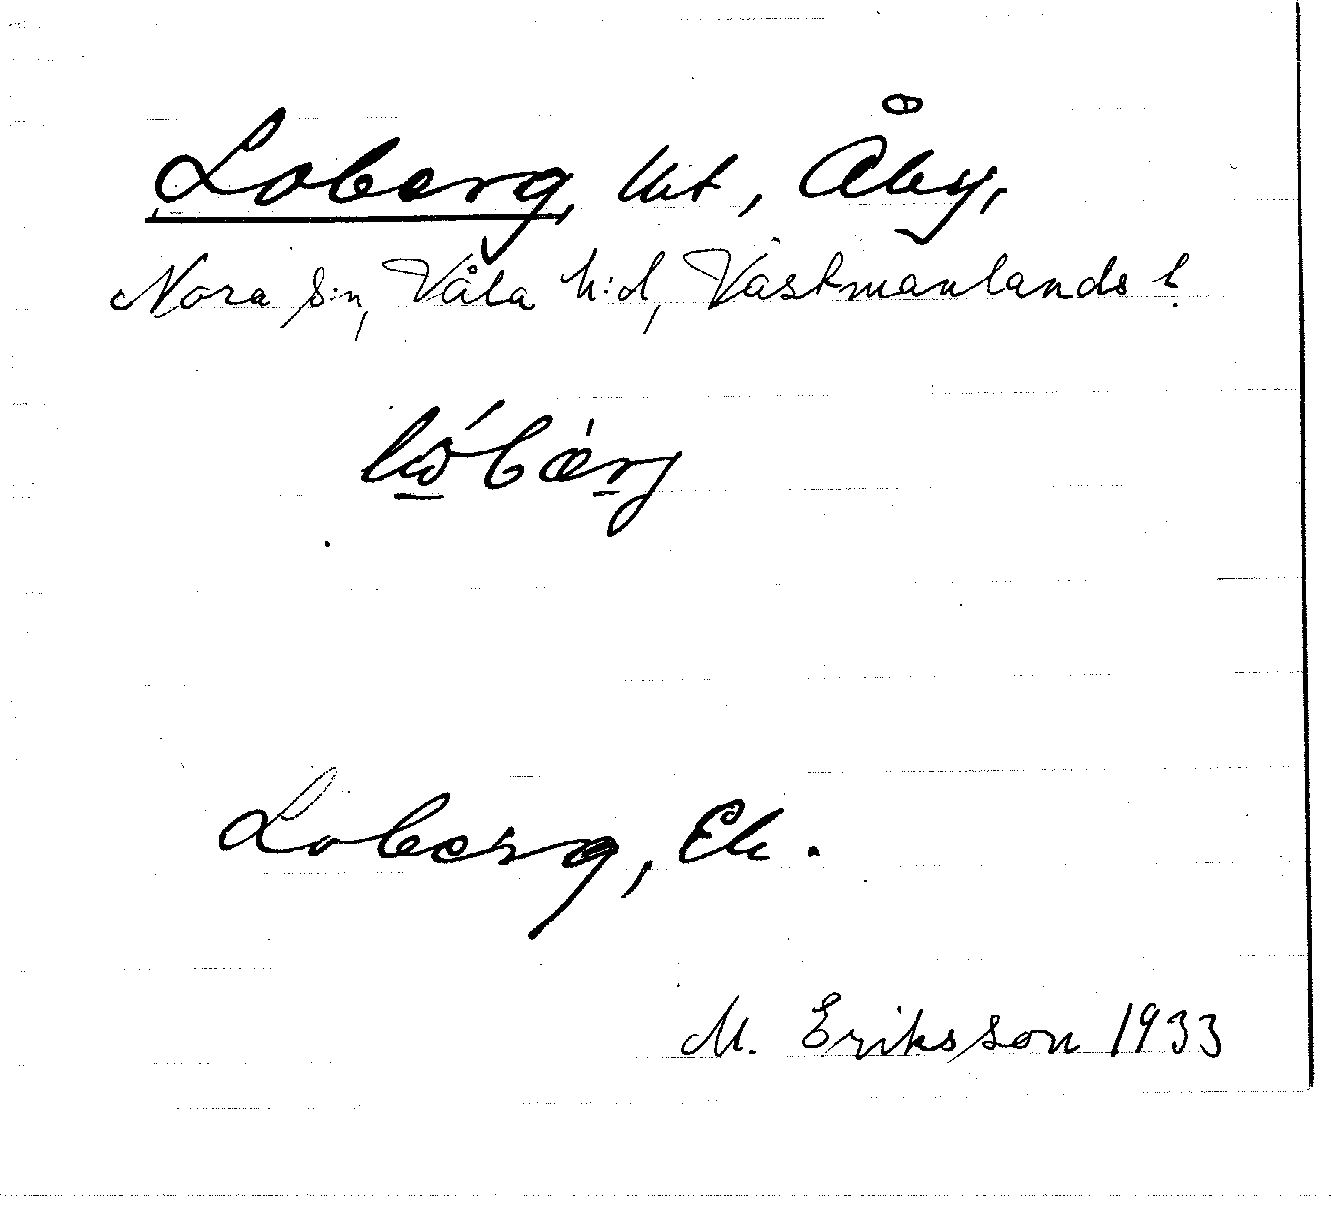 Loberg, lht, Åby,
Nora s:n, Våla h:d, Västmanlands l.
Loberg, Ek.
M. Eriksson 1933